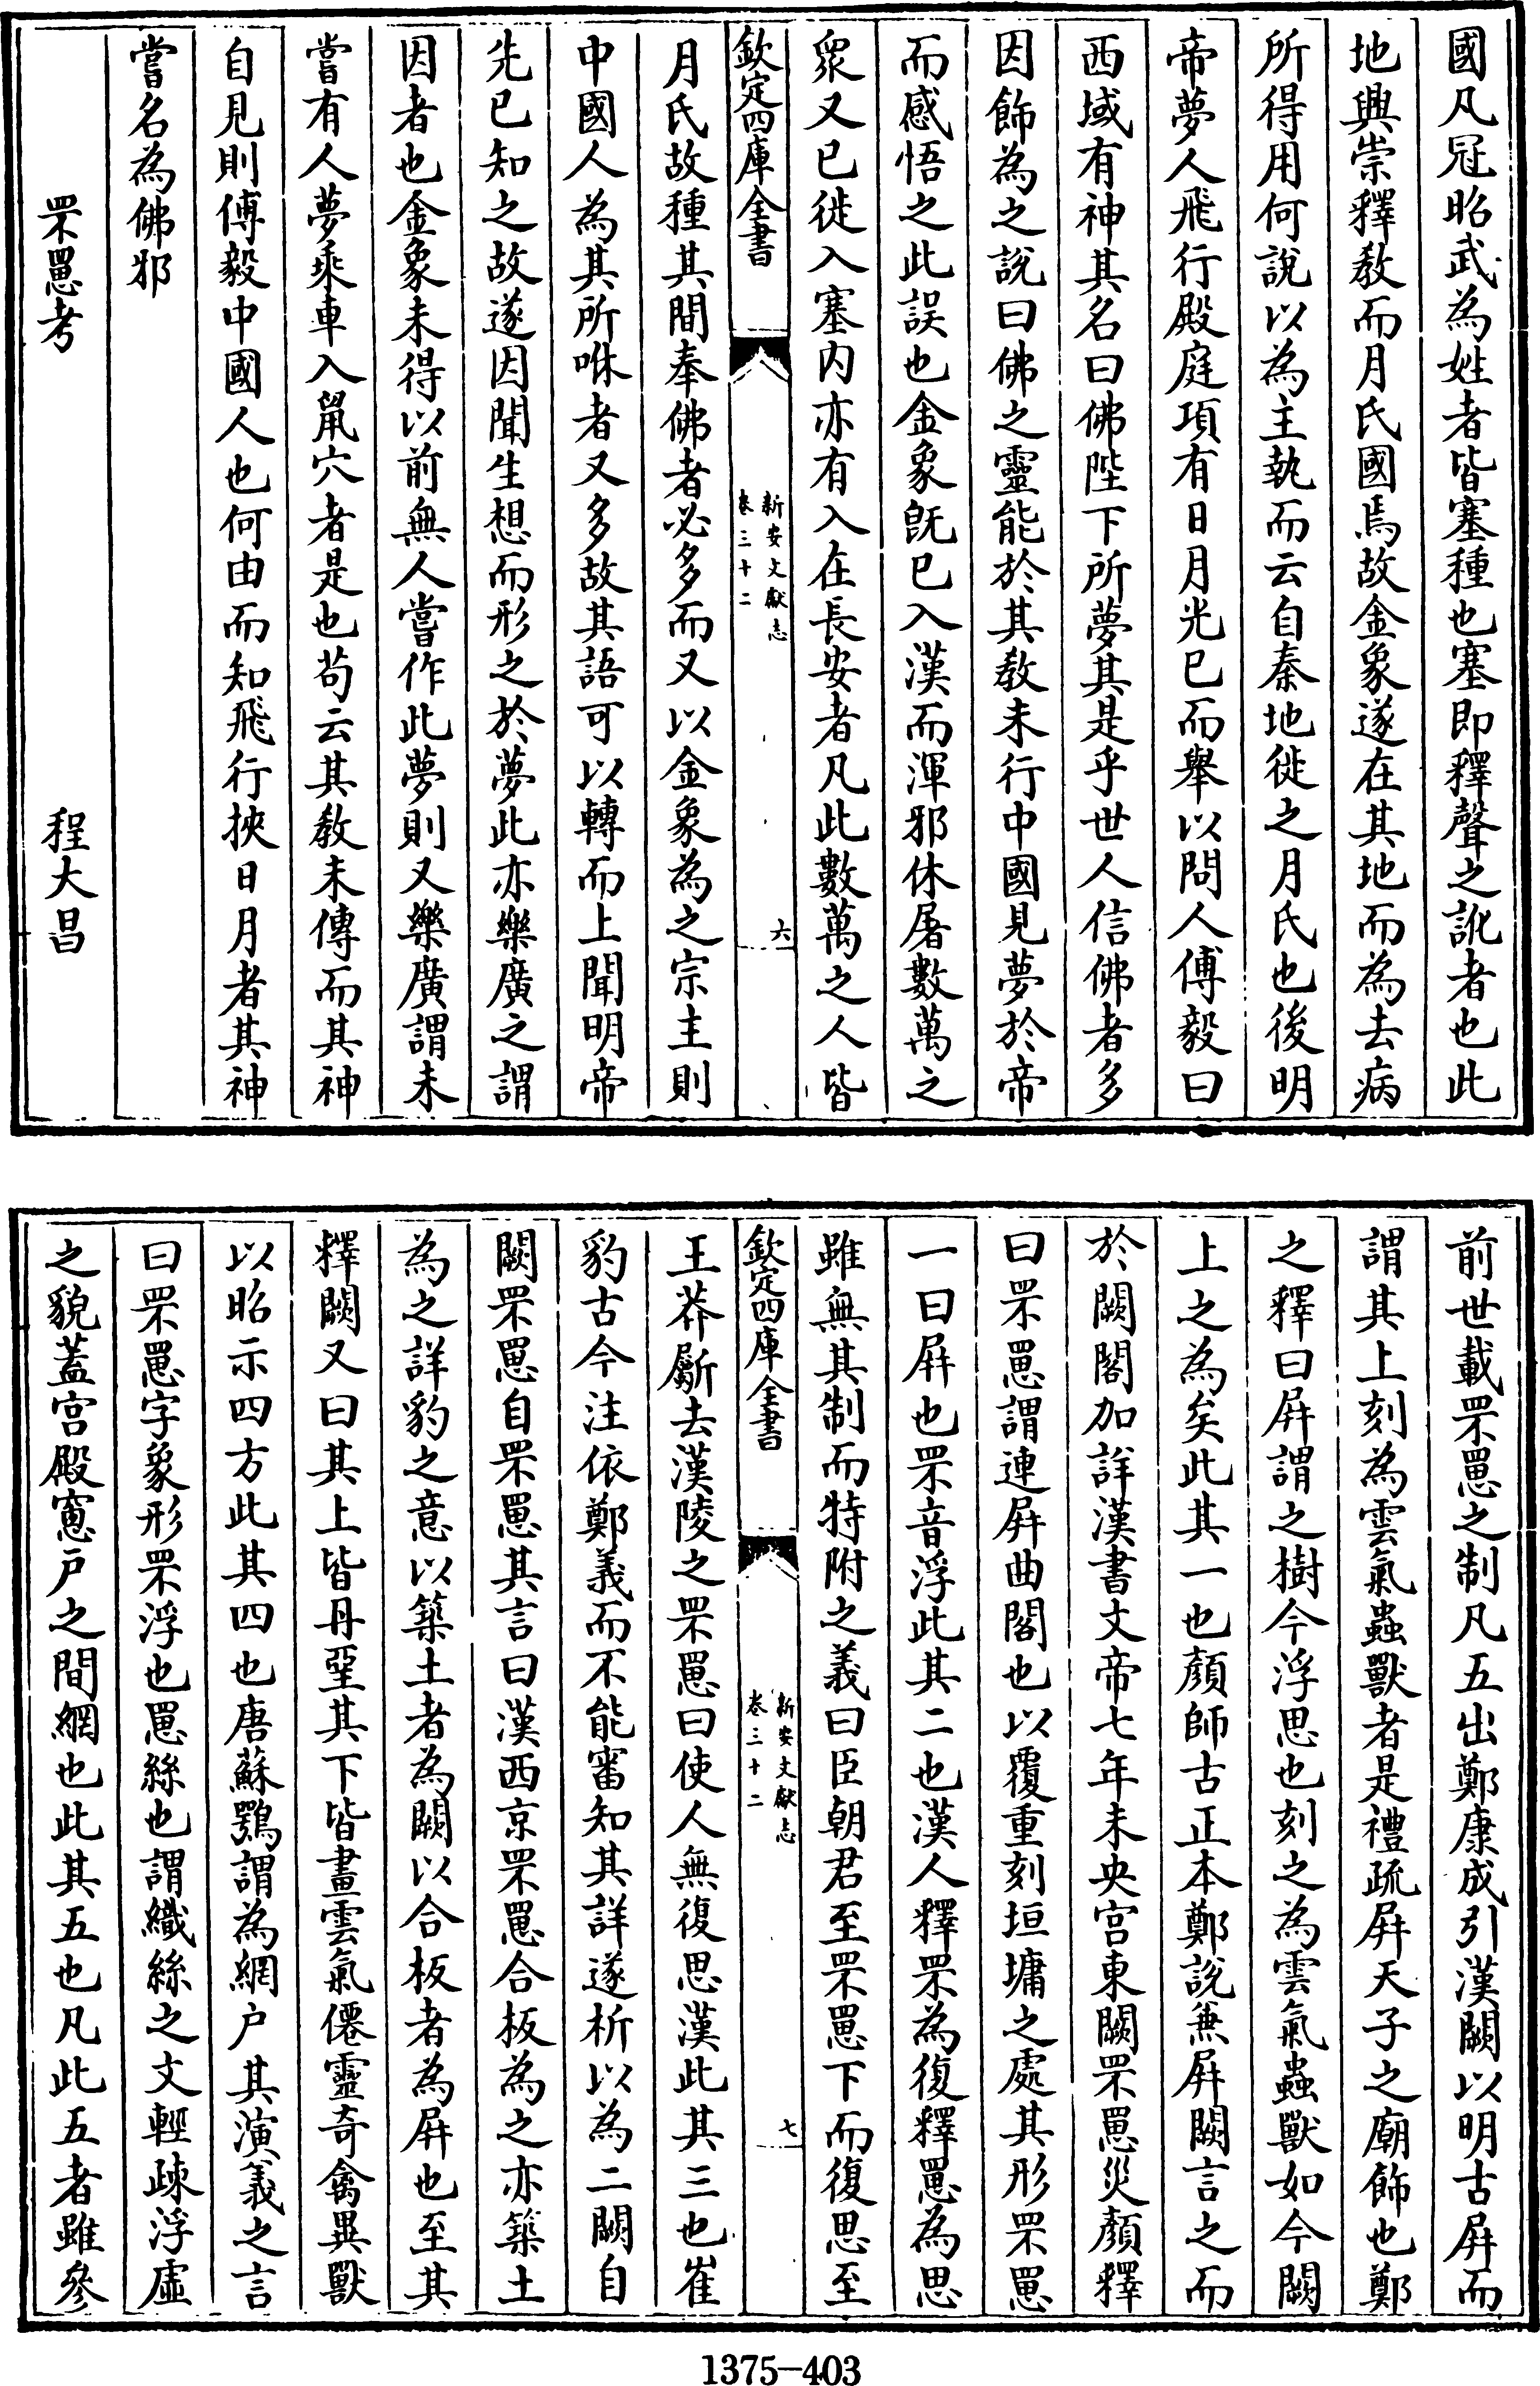 國凡冠昭武為姓者皆塞種也塞即釋聲之訛者也此
地興崇釋教而月氏國焉故金象遂在其地而為去病
所得用何說以為主執而云自秦地徙之月氏也後明
帝夢人飛行殿庭項有日月光已而舉以問人傅毅曰
西域有神其名曰佛陛下所夢其是乎世人信佛者多
因飾為之說曰佛之靈能於其教未行中國見夢於帝
而感悟之此誤也金象旣已入漢而渾邪休屠數萬之
衆又已徙入塞内亦有入在長安者凡此數萬之人皆
欽定四庫全書
新安文獻志
卷三十二
六
月氏故種其間奉佛者必多而又以金象為之宗主則
中國人為其所咻者又多故其語可以轉而上聞明帝
先已知之故遂因聞生想而形之於夢此亦樂廣之謂
因者也金象未得以前無人嘗作此夢則又樂廣謂未
嘗有人夢乘車入鼠穴者是也茍云其教未傳而其神
自見則傅毅中國人也何由而知飛行挾日月者其神
嘗名為佛邪
罘罳考 程大昌
前世載罘罳之制凡五出鄭康成引漢闕以明古屛而
謂其上刻為雲氣蟲獸者是禮疏屛天子之廟飾也鄭
之釋曰屛謂之樹今浮思也刻之為雲氣蟲獸如今闕
上之為矣此其一也顏師古正本鄭說兼屛闕言之而
於闕閣加詳漢書文帝七年未央宫東闕罘罳災顏釋
曰罘罳謂連屛曲閣也以覆重刻垣墉之處其形罘罳
一曰屛也罘音浮此其二也漢人釋罘為復釋罳為思
雖無其制而特附之義曰臣朝君至罘罳下而復思至
欽定四庫全書
新安文獻志
卷三十二
七
王莽斸去漢陵之罘罳曰使人無復思漢此其三也崔
豹古今注依鄭義而不能審知其詳遂析以為二闕自
闕罘罳自罘罳其言曰漢西京罘罳合板為之亦築土
為之詳豹之意以築土者為闕以合板者為屛也至其
釋闕又曰其上皆丹堊其下皆畫雲氣僊靈奇禽異獸
以昭示四方此其四也唐蘇鶚謂為網户其演義之言
曰罘罳字象形罘浮也罳絲也謂織絲之文輕疎浮虛
之貌蓋宫殿窻戸之間網也此其五也凡此五者雖參
1375-403